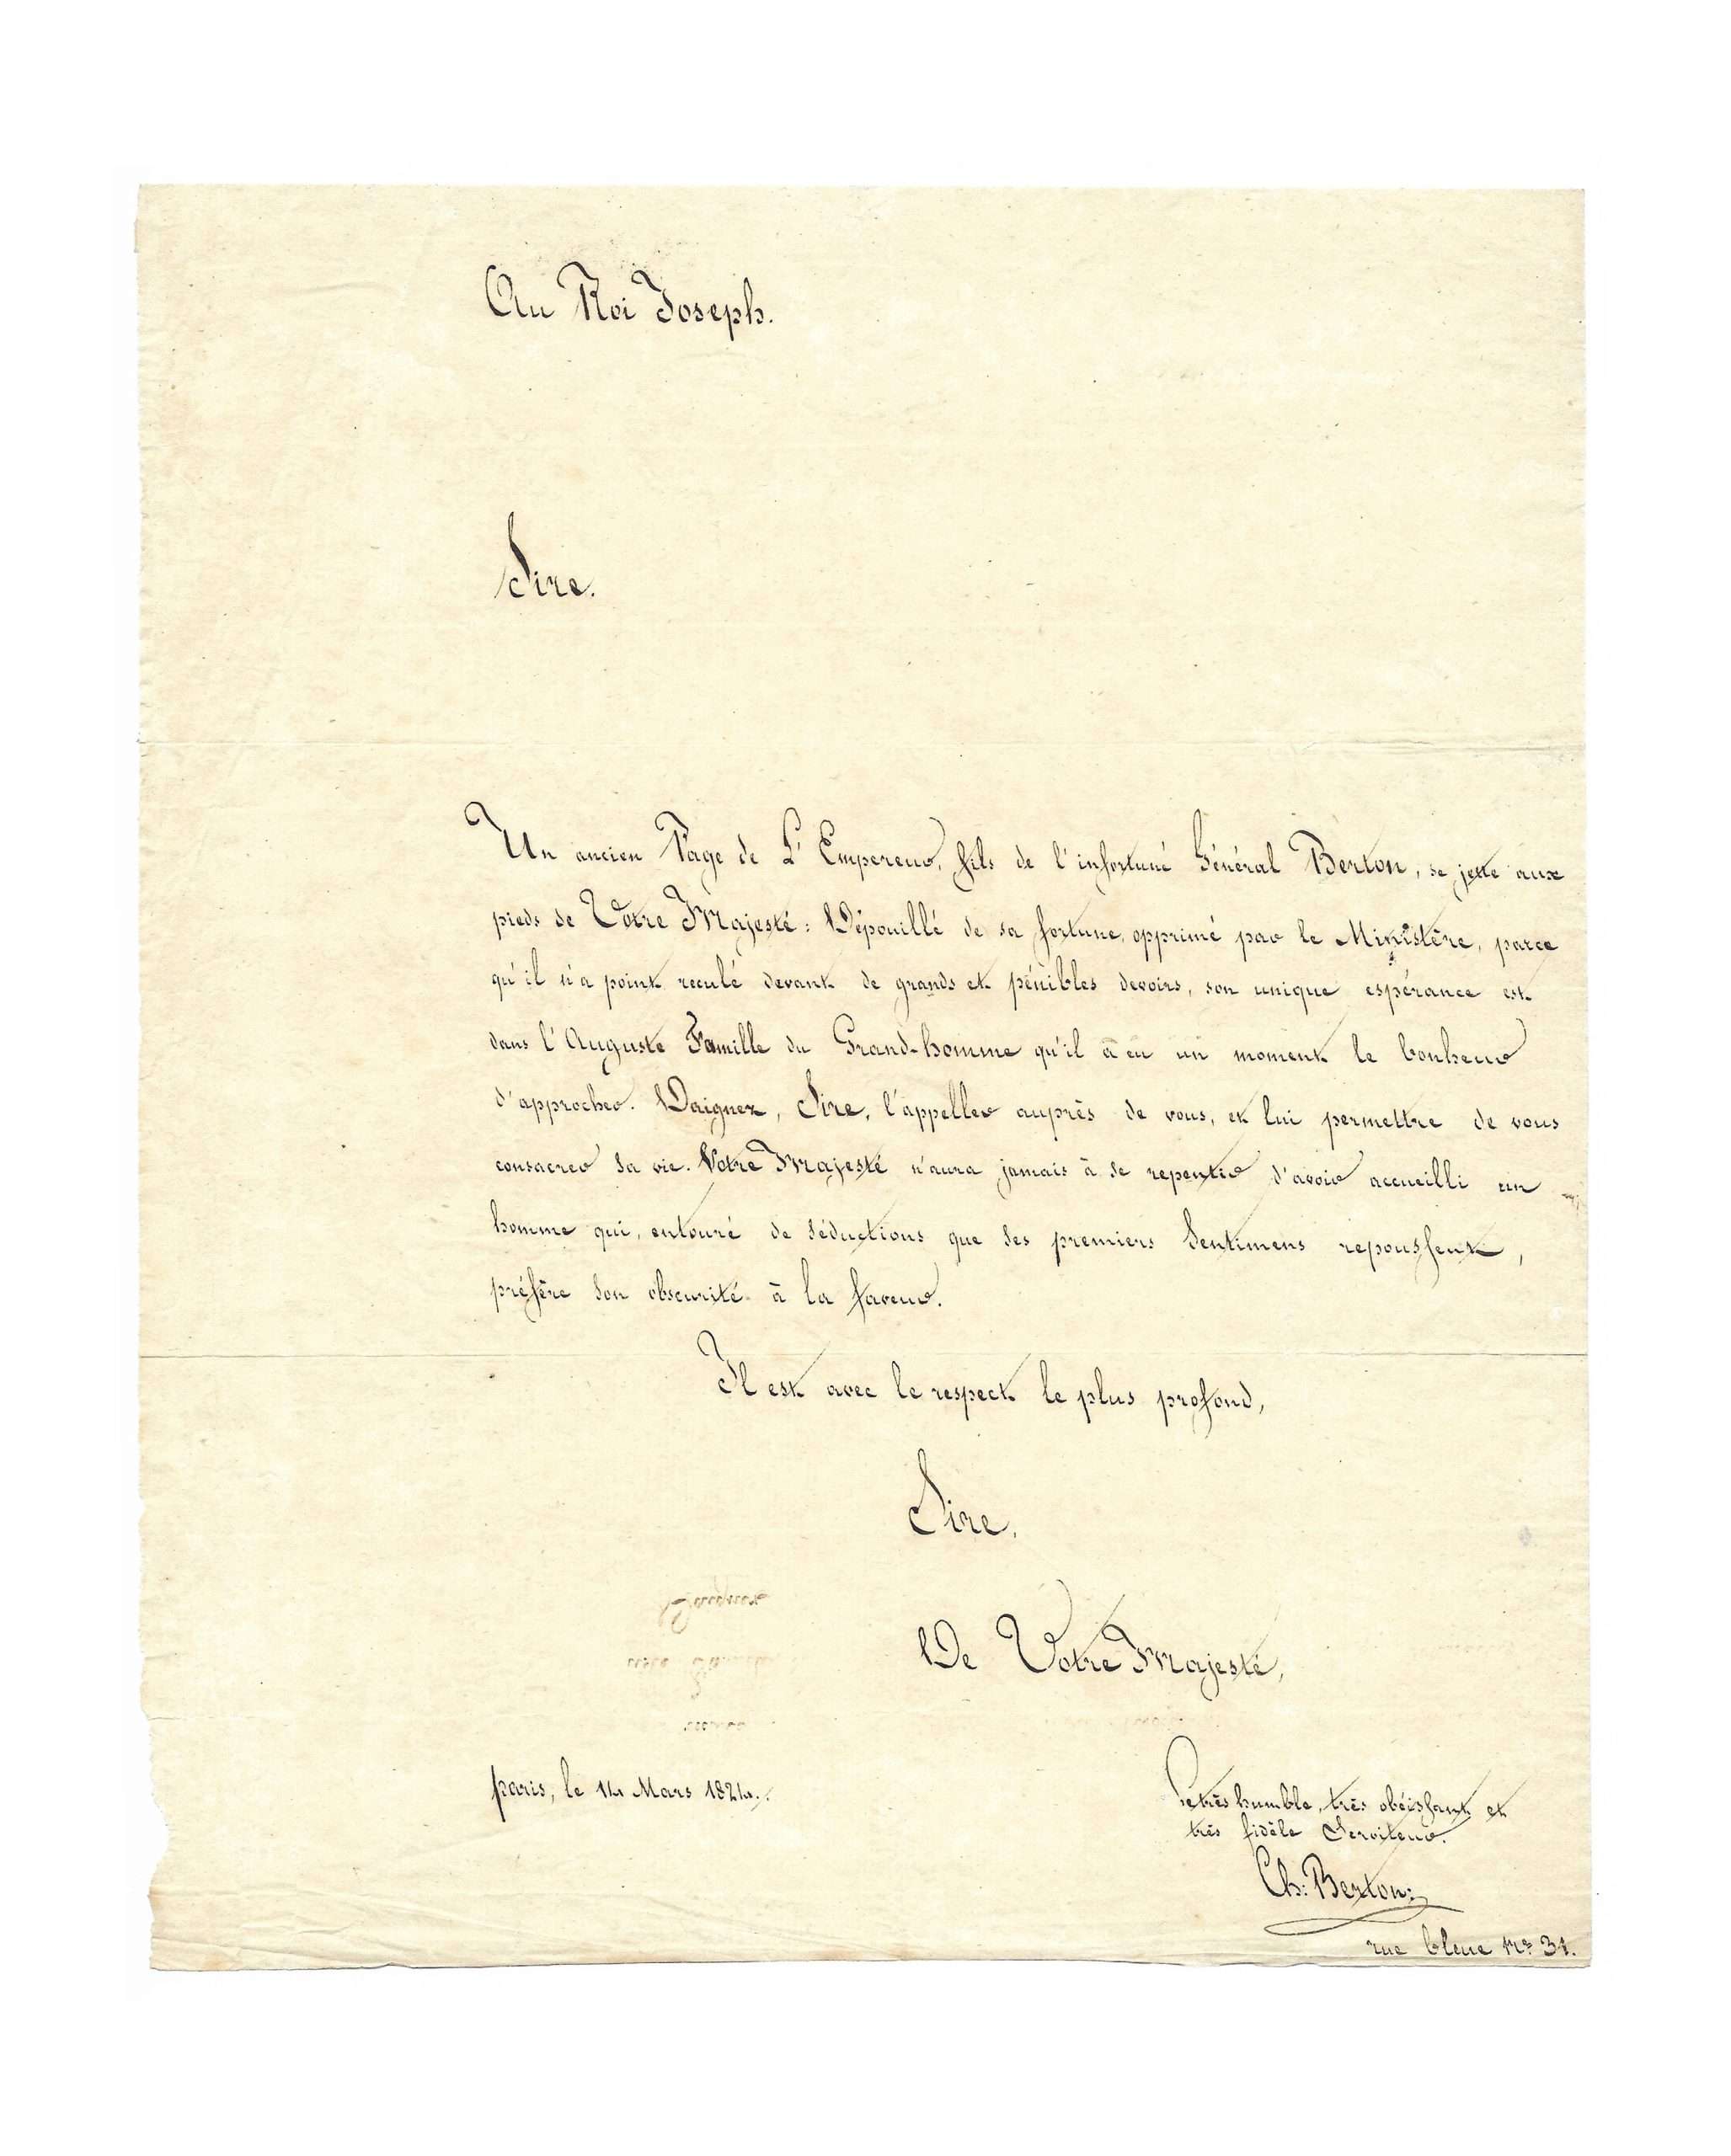 Au Roi Joseph.
Sire.
Un ancien Page de L'Empereur, fils de l'infortuné Général Berton, se jette aux
pieds de Votre Majesté : Dépouillé de sa fortune, opprimé par le Ministère, parce
qu'il n'a point reculé devant de grands et pénibles devoirs, son unique espérance est
dans l'Auguste Famille du Grand-homme qu'il à eu un moment le bonheur
d'approcher. Daignez, Sire, l'appeller auprès de vous, et lui permettre de vous
consacrer sa vie. Votre Majesté n'aura jamais à se repentir d'avoir accueilli un
homme qui, entouré de séductions que ses premiers Sentimens repoussent,
préfère son obscurité à la faveur.
Il est avec le respect le plus profond,
Sire,
De Votre Majesté,
paris, le 14 Mars 1824.
Le très humble, très obéissant et
très fidèle Serviteur.
Ch: Berton:
rue bleue no 31.